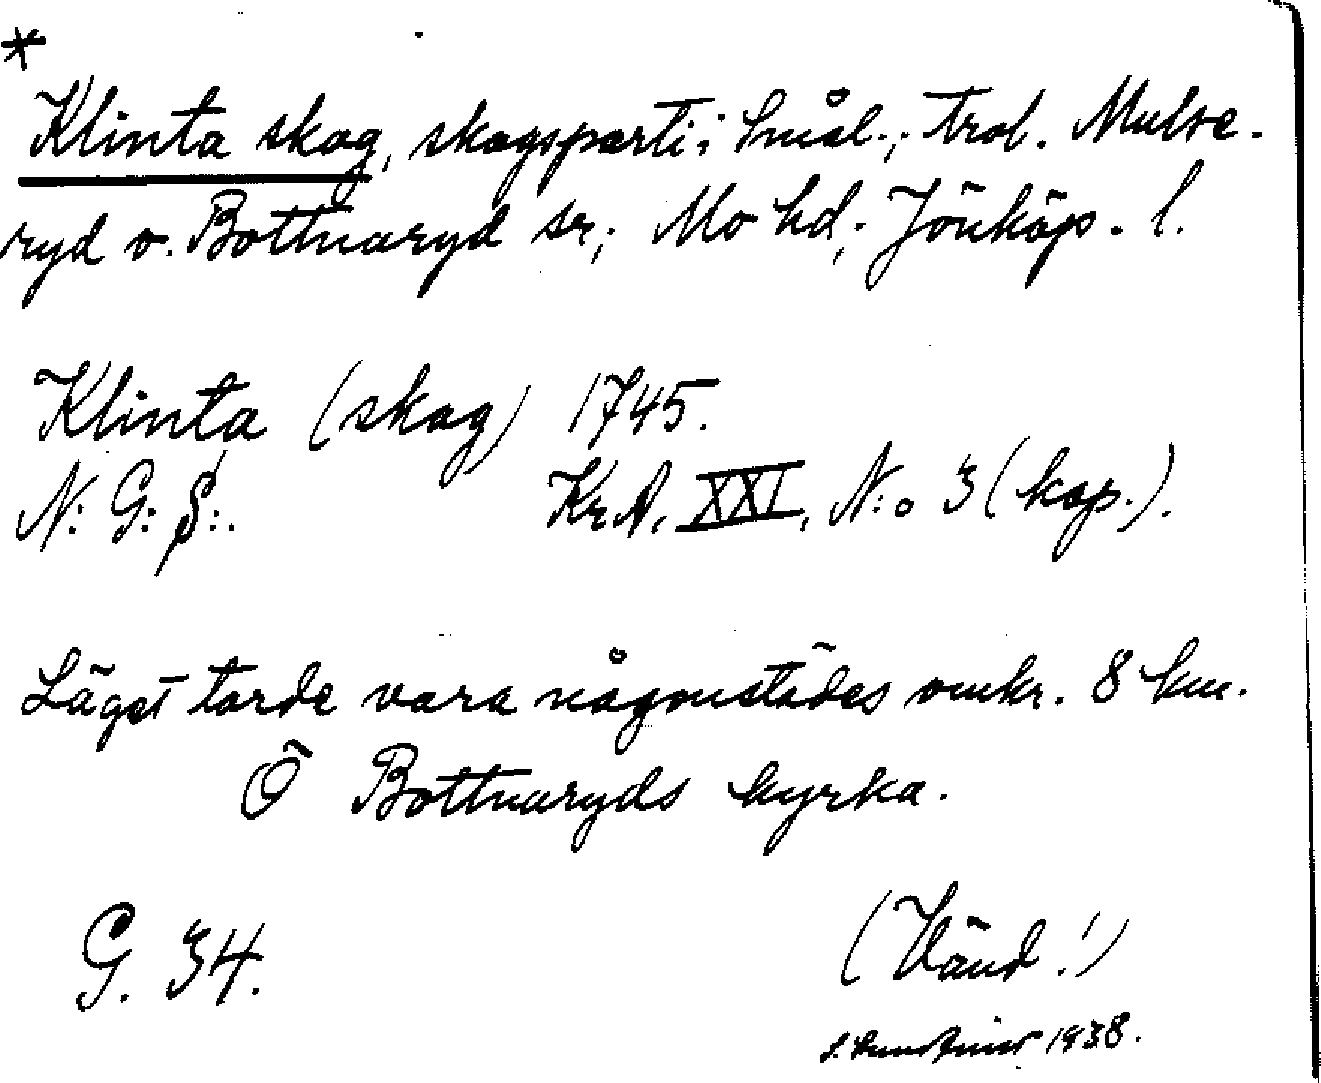 *
Klinta skog, skogsparti i Smål.; trol. Mulse-
ryd o. Bottnaryd sr; Mo hd; Jönköp. l.
Klinta (skog) 1745.
N: G: S:.
Kr.A. XXI, N:o 3 (kop.).
Läget torde vara någonstädes omkr. 8 km.
Ö Bottnaryds kyrka.
G. 34.
(Vänd!)
1938.